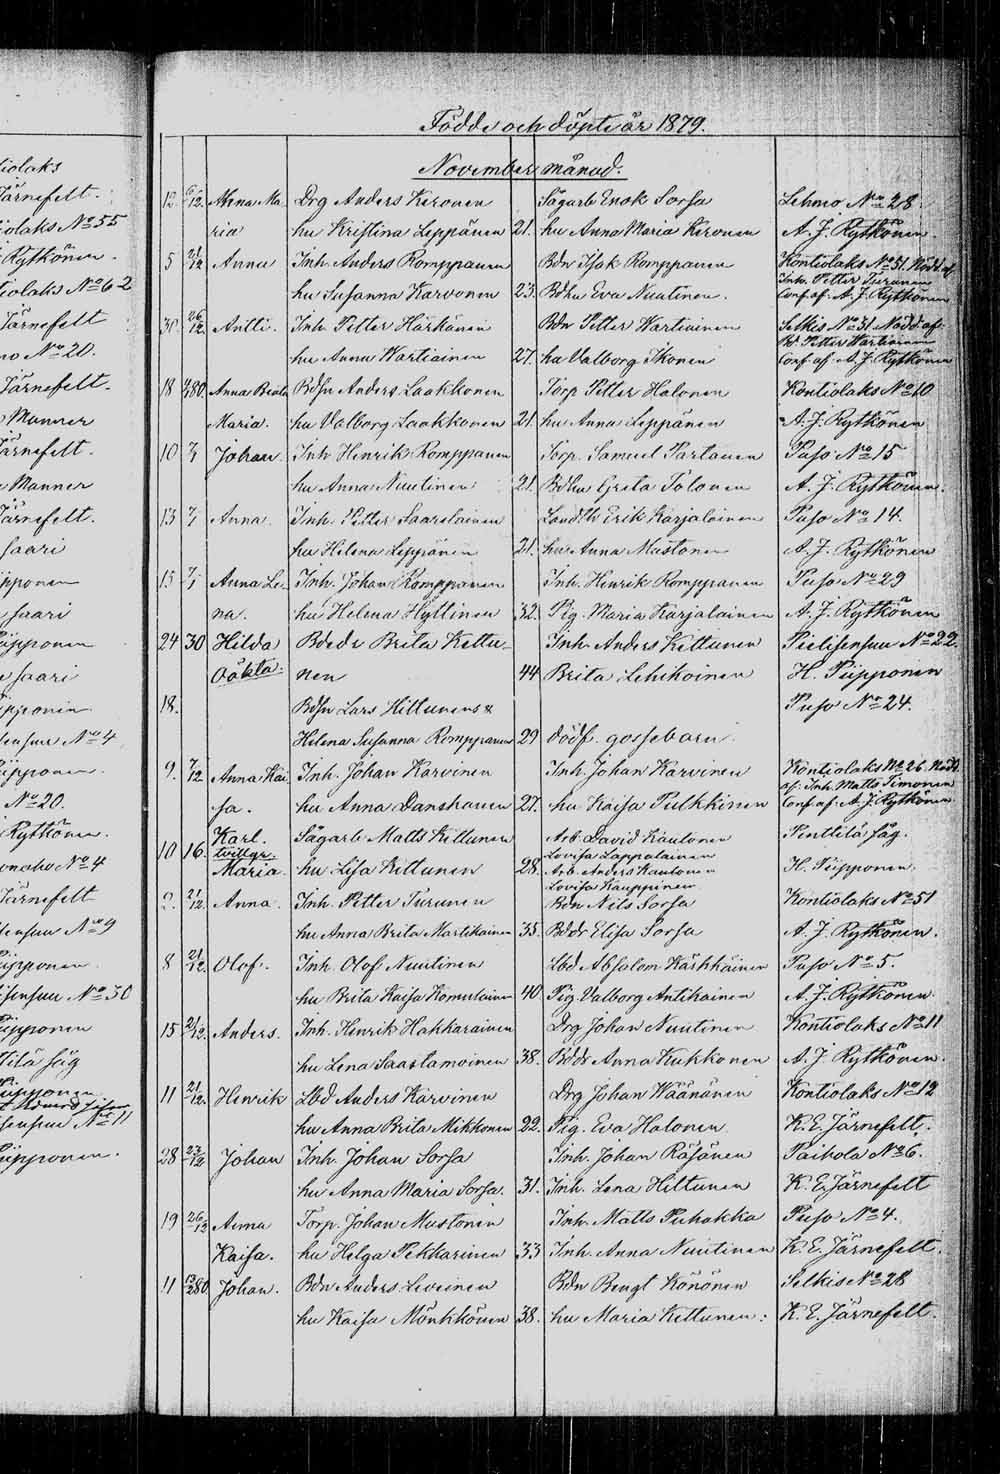 iolaks
Järnefelt.
iolaks No 55
Rytkönen.
tiolaks No 62
Järnefelt
No 20.
Järnefelt.
Manner
Järnefelt.
Manner
Järnefelt.
saari
ipponen
saari
Piipponen
saari
Piipponen
ensuu No 4
Piipponen.
No 20.
Rytkönen.
No 4
Järnefelt
ensuu No 9
Piipponen
isensuu No 30
Piipponen
tilä såg
Piipponen
ensuu No 11
Piipponen.
Födde och döpte år 1879.
November månad.
12 6/12. Anna Ma- Drg Anders Kironen Sågarb Enok Sorsa Lehmo No 28.
ria hu Kristina Leppänen 21. hu Anna Maria Kironen A. J. Rytkönen
5 21/12 Anna Inh. Anders Romppanen Bdn Isak Romppanen Kontiolaks No 31. Nödd. af
Inh. Petter Turunen
hu Susanna Karvonen 23. Bdhu Eva Nuutinen. Conf. af. A. J. Rytkönen
30 26/12. Antti. Inh. Petter Härkänen Bdn Petter Wartiainen Selkis No 31 Nödd. af.
Bd. Petter Wartiainen
hu Anna Wartiainen 27. hu Valborg Ikonen Conf. af. A. J. Rytkönen
18 80. Anna Brita Bdsn Anders Laakkonen Torp Petter Halonen Kontiolaks No 10
Maria. hu Valborg Laakkonen 21. hu Anna Leppänen A. J. Rytkönen
10 7/1 Johan. Inh Henrik Romppanen Torp. Samuel Partanen Puso No 15
hu Anna Nuutinen 21. Bdhu Greta Tolonen A. J. Rytkönen.
13 7/1 Anna. Inh. Petter Saarelainen Landth Erik Karjalainen Puso No 14.
hu Helena Leppänen 21. hu Anna Mustonen A. J. Rytkönen
13 7/1 Anna Le- Inh. Johan Romppanen Inh. Henrik Romppanen Puso No 29
na. hu Helena Hyttinen 32. Pig. Maria Karjalainen A. J. Rytkönen
24 30 Hilda Bdedr Brita Kettu- Inh. Anders Kettunen Pielisensuu No 22.
Oäkta. nen 44 Brita Lehikoinen H. Piipponen
18. Bdsn Lars Hittunens & Puso No 24.
Helena Susanna Romppanen 29 dödf. gossebarn.
9. 7/12 Anna Kai- Inh. Johan Karvinen Inh. Johan Karvinen Kontiolaks No 26. Nödd.
af. Inh. Matts Timonen
sa. hu Anna Danskanen 27. hu Kaisa Pulkkinen Conf. af. A. J. Rytkönen
Karl. Sågarb Matts Kettunen Arb. David Kautonen Penttilä såg.
10 16. tvillgr Lovisa Lappalainen
Maria. hu Lisa Kettunen 28. Arb. Anders Kautonen H. Piipponen.
Lovisa Kauppinen
2. 21/12. Anna. Inh. Petter Turunen Bdn Nils Sorsa Kontiolaks No 51
hu Anna Brita Martikainen 35. Bddr Elisa Sorsa A. J. Rytkönen.
8 21/12. Olof. Inh. Olof Nuutinen Lbd Absalom Kärkkäinen Puso No 5.
hu Brita Kaisa Komulainen 40 Pig. Valborg Antikainen A. J. Rytkönen.
15 21/12. Anders. Inh. Henrik Hakkarainen Drg Johan Nuutinen Kontiolaks No 11
hu Lena Saastamoinen 38. Bddr Anna Kukkonen A. J. Rytkönen.
11 21/12. Henrik Lbd Anders Karvinen Drg Johan Wäänänen Kontiolaks No 12
hu Anna Brita Mikkonen 22. Pig. Eva Halonen K. E. Järnefelt.
28 23/12 Johan Inh. Johan Sorsa Inh. Johan Räsänen Paihola No 6.
hu Anna Maria Sorsa. 31. Inh. Lena Hiltunen K. E. Järnefelt
19 26/12 Anna Torp. Johan Mustonen Inh. Matts Puhakka Puso No 4.
Kaisa. hu Helga Pekkarinen 33 Inh. Anna Nuutinen K. E. Järnefelt.
11 80 Johan. Bdn Anders Leveinen Bdn Bengt Könönen Selkis No 28
hu Kaisa Mönkkönen 38. hu Maria Kettunen. K. E. Järnefelt.